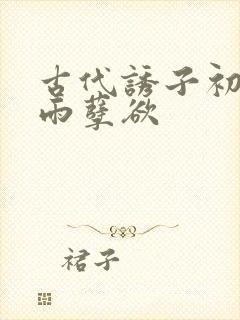 古代誘子初
雨孽欲
裙子